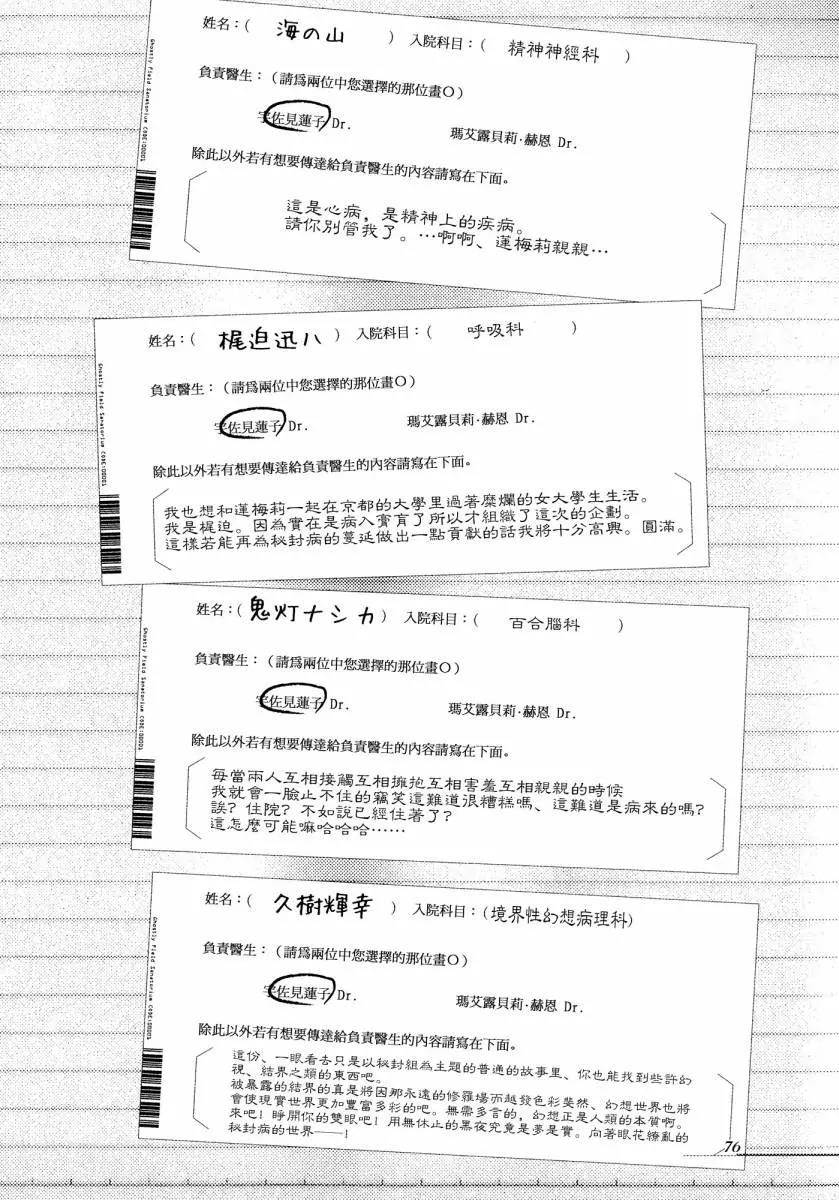 姓名：( 海の山 ) 入院科目：( 精神神經科 )
負責醫生：（請爲兩位中您選擇的那位畫O）
宇佐見蓮子 Dr. 瑪艾露貝莉·赫恩 Dr.
除此以外若有想要傳達給負責醫生的內容請寫在下面。
這是心病，是精神上的疾病。
請你別管我了。…啊啊、蓮梅莉親親…
Ghostly Field Sanatorium CODE:00001
姓名：( 梶迫迅八 ) 入院科目：( 呼吸科 )
負責醫生：（請爲兩位中您選擇的那位畫O）
宇佐見蓮子 Dr. 瑪艾露貝莉·赫恩 Dr.
除此以外若有想要傳達給負責醫生的內容請寫在下面。
我也想和蓮梅莉一起在京都的大學里過著糜爛的女大學生生活。
我是梶迫。因為實在是病入膏肓了所以才組織了這次的企劃。
這樣若能再為秘封病的蔓延做出一點貢獻的話我將十分高興。圓滿。
Ghostly Field Sanatorium CODE:00001
姓名：( 鬼灯ナシカ ) 入院科目：( 百合腦科 )
負責醫生：（請爲兩位中您選擇的那位畫O）
宇佐見蓮子 Dr. 瑪艾露貝莉·赫恩 Dr.
除此以外若有想要傳達給負責醫生的內容請寫在下面。
每當兩人互相接觸互相擁抱互相害羞互相親親的時候
我就會一臉止不住的竊笑這難道很糟糕嗎、這難道是病來的嗎?
誒? 住院? 不如說已經住著了?
這怎麼可能嘛哈哈哈……
Ghostly Field Sanatorium CODE:00001
姓名：( 久樹輝幸 ) 入院科目：(境界性幻想病理科)
負責醫生：（請爲兩位中您選擇的那位畫O）
宇佐見蓮子 Dr. 瑪艾露貝莉·赫恩 Dr.
除此以外若有想要傳達給負責醫生的內容請寫在下面。
這份、一眼看去只是以秘封組為主題的普通的故事里、你也能找到些許幻
視、結界之類的東西吧。
被暴露的結界的真是將因那永遠的修羅場而越發色彩斐然、幻想世界也將
會使現實世界更加豐富多彩的吧。無需多言的，幻想正是人類的本質啊。
來吧! 睜開你的雙眼吧! 用無休止的黑夜究竟是夢是實。向著眼花繚亂的
秘封病的世界——!
Ghostly Field Sanatorium CODE:00001
76